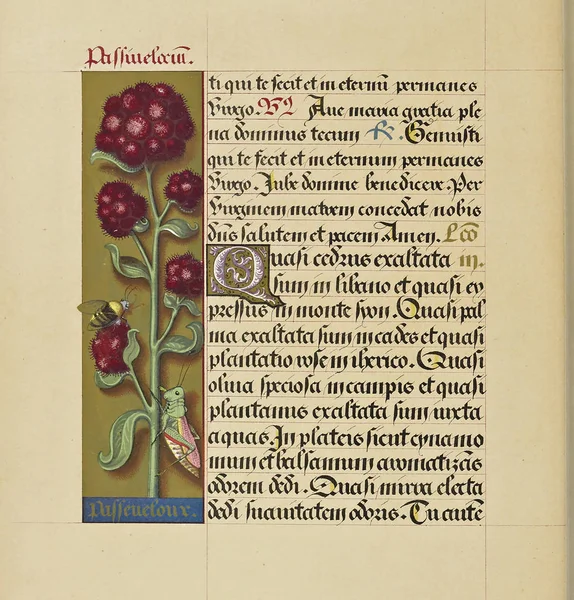 Passiuelorū.
ti qui te fecit et in eternū permanes
Virgo. VƷ Aue maria gratia ple
na dominus tecum R. Genuisti
qui te fecit et in eternum permanes
Virgo. Iube domine benedicere. Per
Virginem matrem concedat nobis
dñs salutem et pacem. Amen. Lcō
Quasi cedrus exaltata iii.
sum in libano et quasi cy
pressus in monte syon. Quasi pal
ma exaltata sum in cades et quasi
plantatio rose in iherico. Quasi
oliua speciosa in campis et quasi
plantanus exaltata sum iuxta
aquas. In plateis sicut cynamo
mum et balsamum aromatizās
odorem dedi. Quasi mirra electa
dedi suauitatem odoris. Tu autē
Passeueloux.